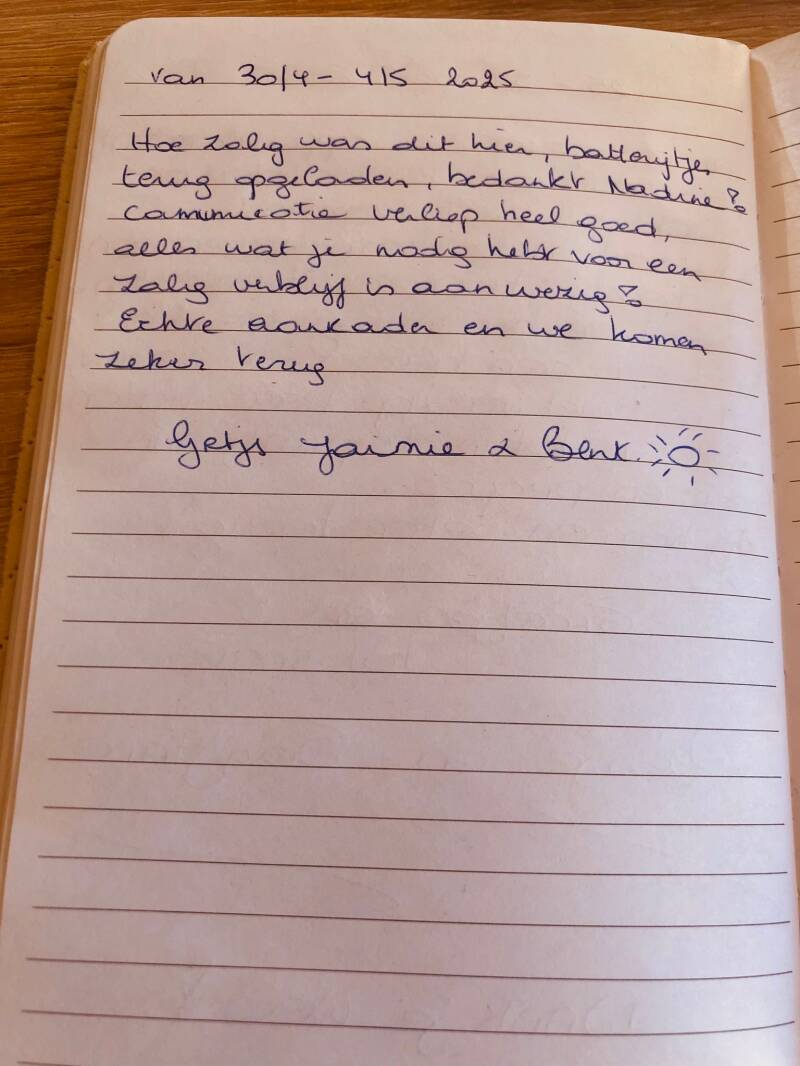 van 30/4 - 4/5 2025
Hoe zalig was dit hier, batterijtjes
terug opgeladen, bedankt Nadine!
Communicatie verliep heel goed,
alles wat je nodig hebt voor een
zalig verblijf is aanwezig!
Echte aanrader en we komen
zeker terug
Getjs Jainie &